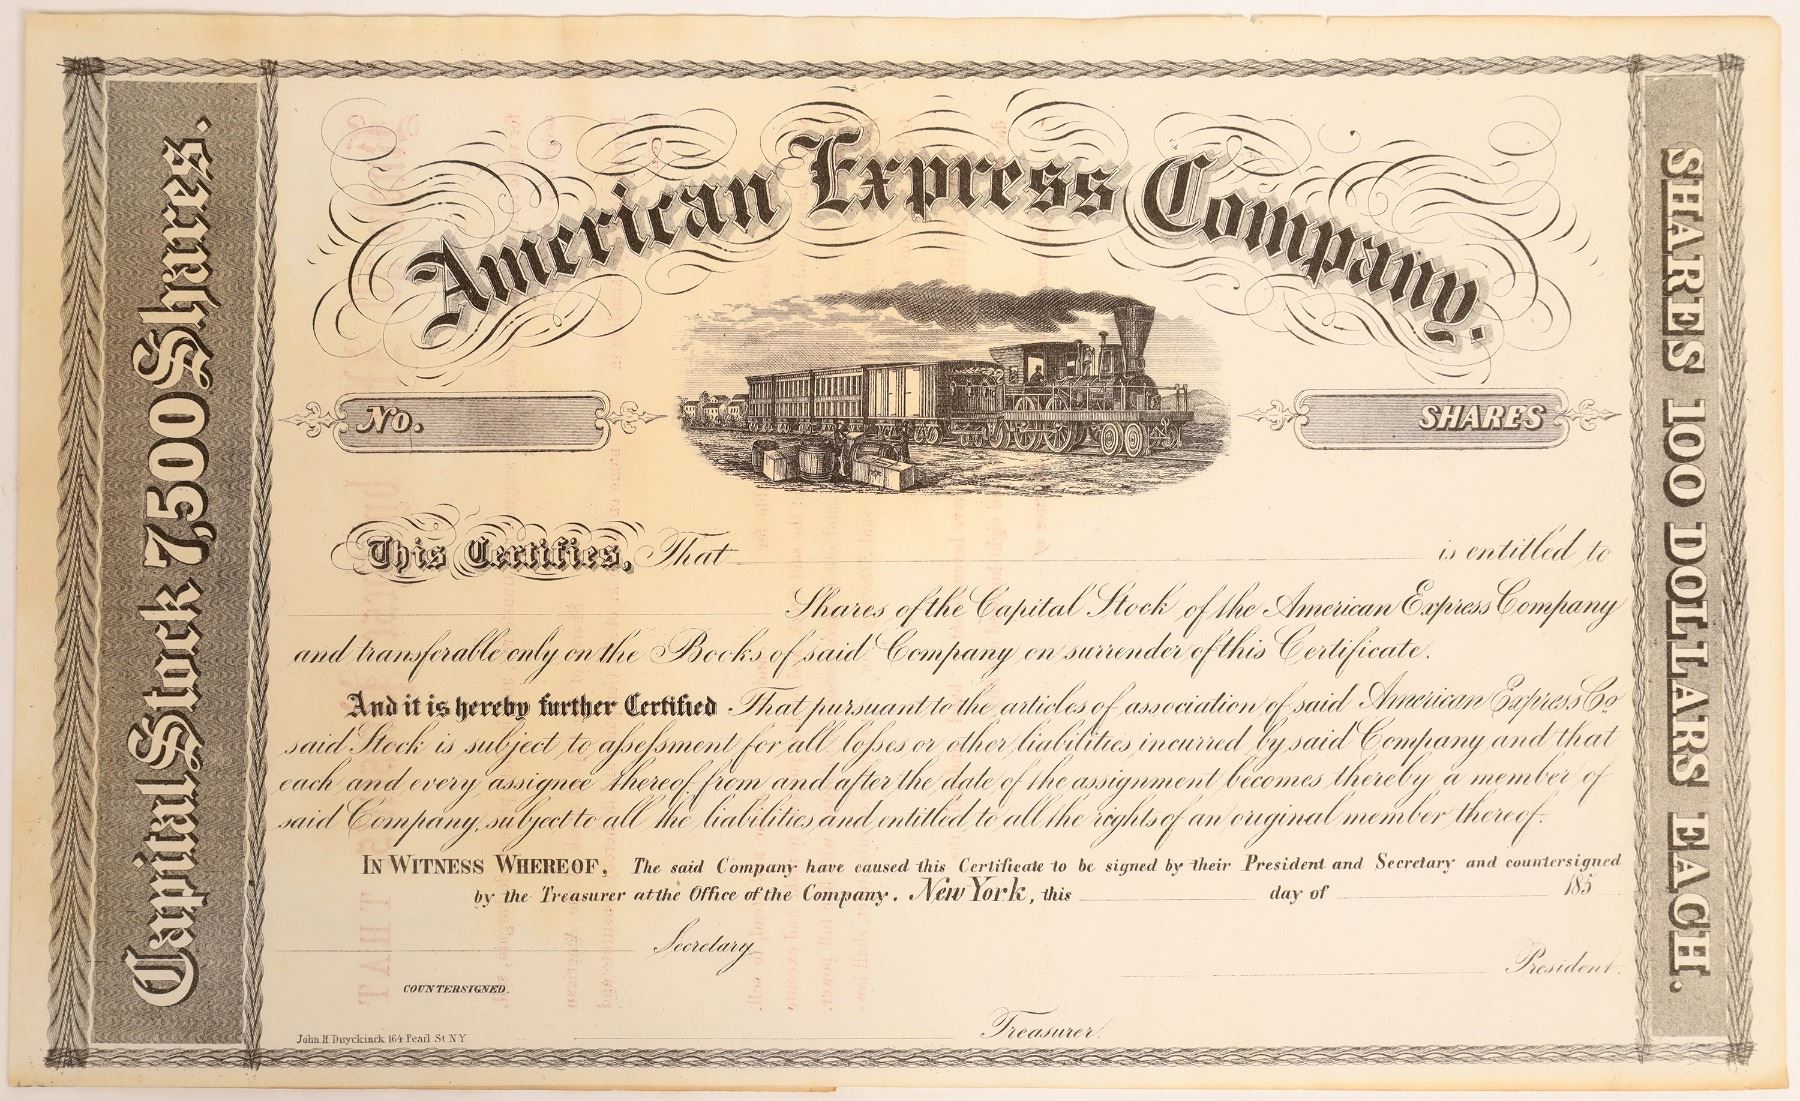 American Express Company.
Capital Stock 7,500 Shares.
SHARES 100 DOLLARS EACH.
No.
SHARES
This Certifies, That is entitled to
Shares of the Capital Stock of the American Express Company
and transferable only on the Books of said Company on surrender of this Certificate.
And it is hereby further Certified That pursuant to the articles of association of said American Express Co
said Stock is subject to aſseſsment for all loſses or other liabilities incurred by said Company and that
each and every assignee thereof from and after the date of the assignment becomes thereby a member of
said Company, subject to all the liabilities, and entitled to all the rights of an original member thereof.
IN WITNESS WHEREOF, The said Company have caused this Certificate to be signed by their President and Secretary and countersigned
by the Treasurer at the Office of the Company. New York, this day of 185
Secretary
President.
COUNTERSIGNED.
Treasurer.
John H Duyckinck 164 Pearl St N.Y